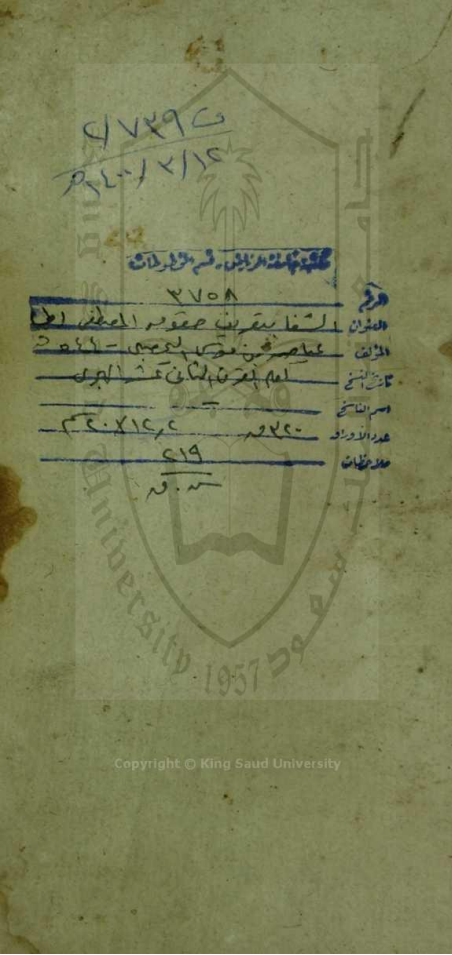 ف ٧٣٩ / ٢
١٤٠٠/٣/١٢ هـ
مكتبة جامعة الرياض - قسم المخطوطات
الرقم ٣٧٥٨
العنوان الشفا بتعريف حقوق المصطفى
المؤلف عياض بن موسى اليحصبي - ٥٤٤ هـ
تاريخ النسخ القرن الثاني عشر الهجري
اسم الناسخ —
عدد الأوراق ٣٢٠ ق
ملاحظات ٢١٩
جامعة الملك سعود
King Saud University
1957
Copyright © King Saud University